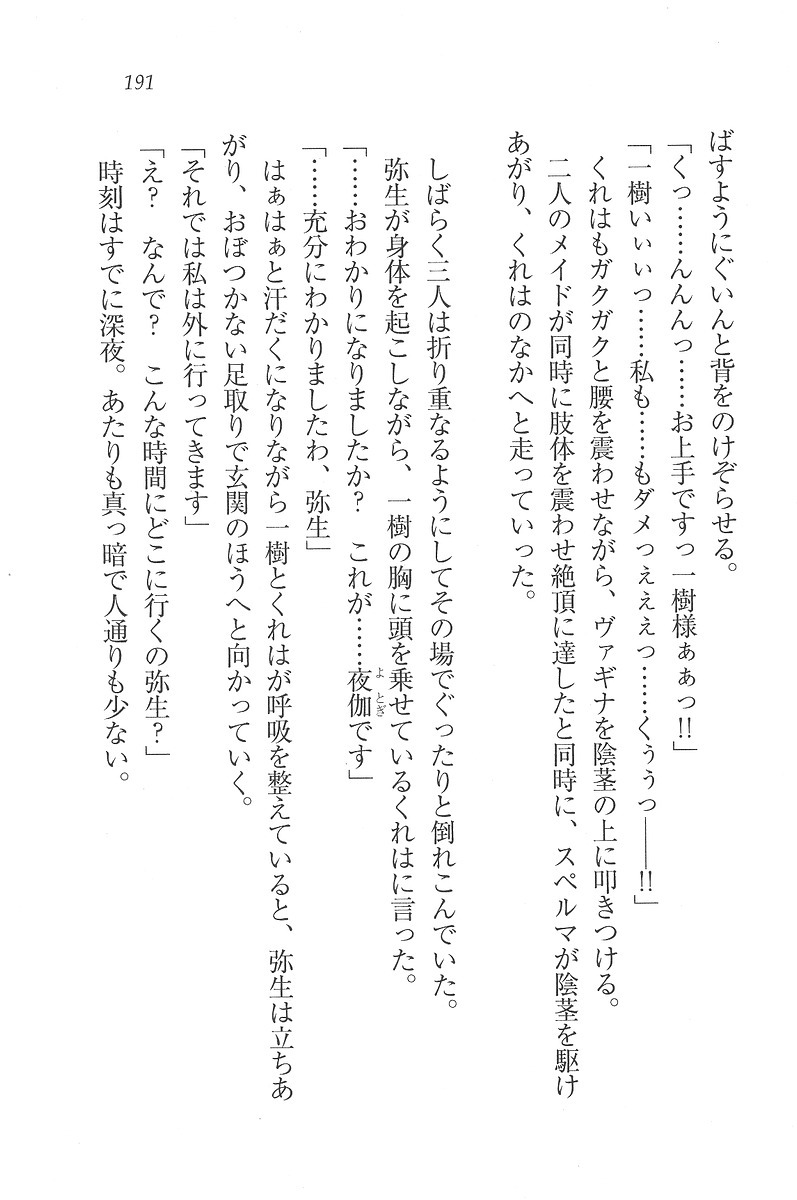 191
ばすようにぐいんと背をのけぞらせる。
「くっ……んんんっ……お上手ですっ一樹様ぁぁっ!!」
「一樹いぃぃっ……私も……もダメっぇぇぇっ……くぅぅっ――!!」
くれはもガクガクと腰を震わせながら、ヴァギナを陰茎の上に叩きつける。
二人のメイドが同時に肢体を震わせ絶頂に達したと同時に、スペルマが陰茎を駆け
あがり、くれはのなかへと走っていった。
しばらく三人は折り重なるようにしてその場でぐったりと倒れこんでいた。
弥生が身体を起こしながら、一樹の胸に頭を乗せているくれはに言った。
「……おわかりになりましたか?　これが……夜伽です」
よとぎ
「……充分にわかりましたわ、弥生」
はぁはぁと汗だくになりながら一樹とくれはが呼吸を整えていると、弥生は立ちあ
がり、おぼつかない足取りで玄関のほうへと向かっていく。
「それでは私は外に行ってきます」
「え?　なんで?　こんな時間にどこに行くの弥生?」
時刻はすでに深夜。あたりも真っ暗で人通りも少ない。